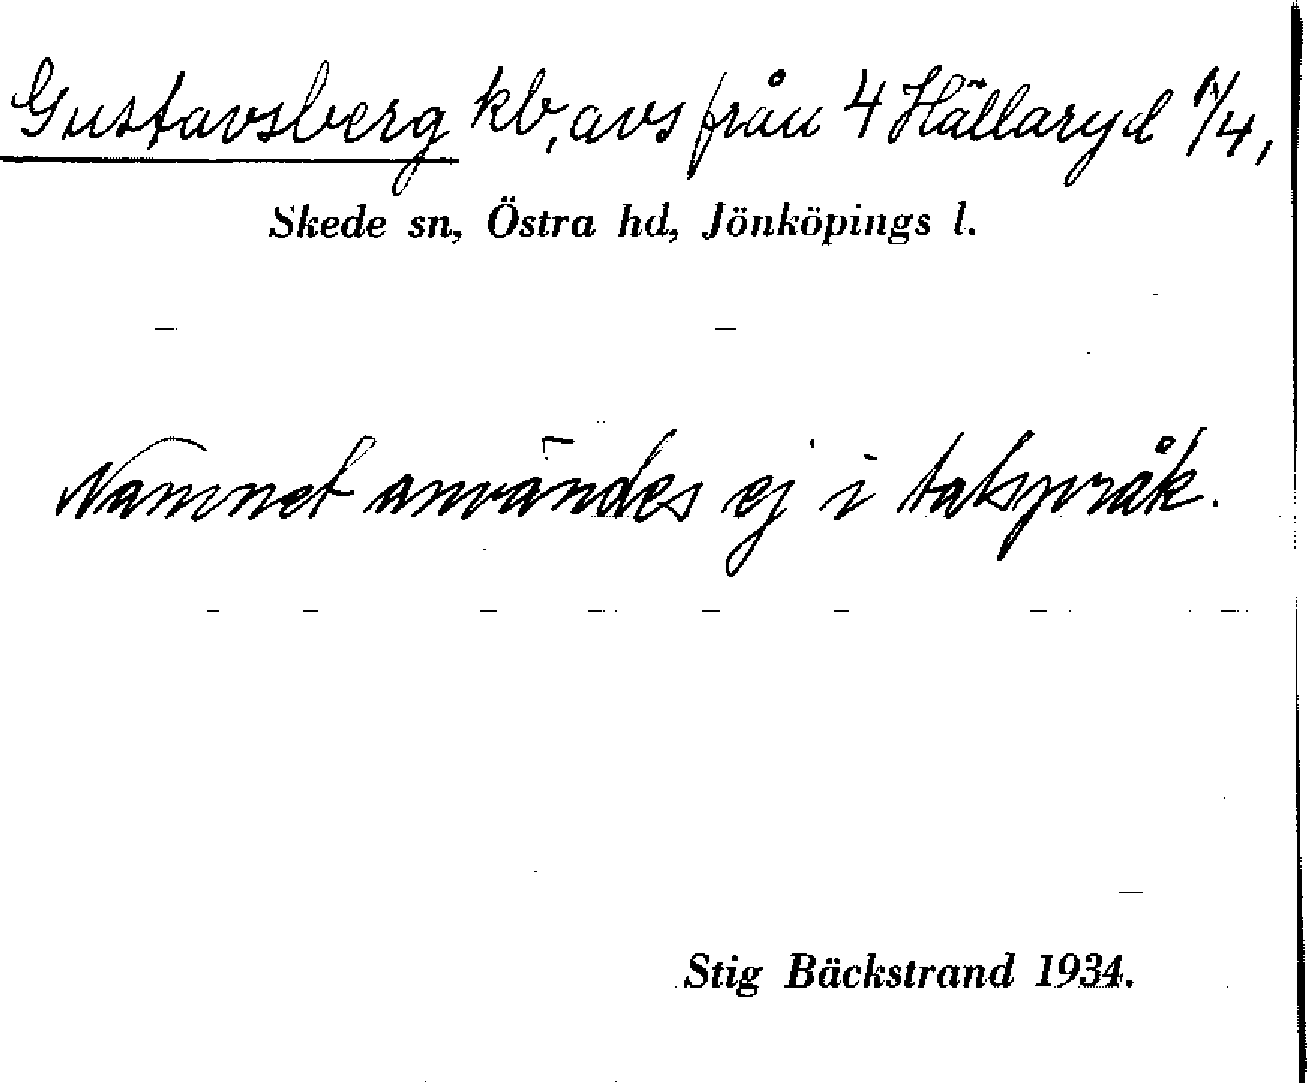 Gustavsberg kb, avs från 4 Hällaryd 1/4,
Skede sn, Östra hd, Jönköpings l.
Namnet användes ej i talspråk.
Stig Bäckstrand 1934.